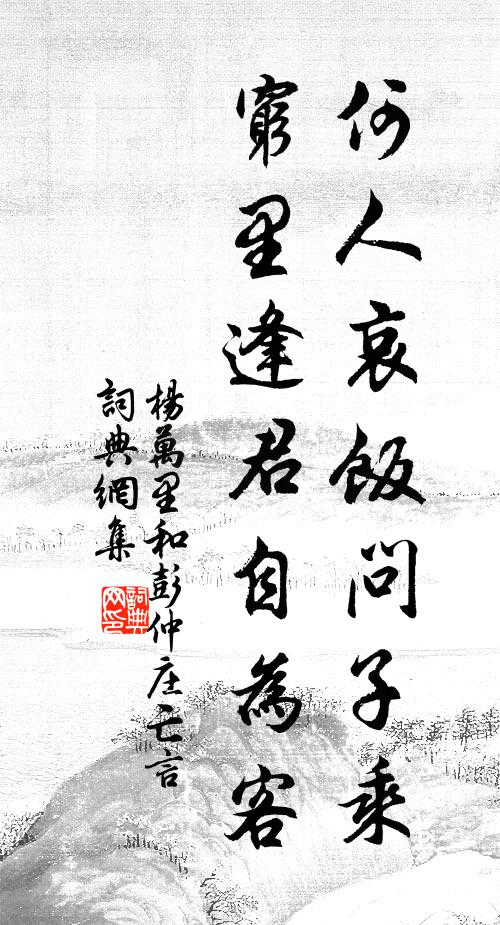 何人哀飯問子乘
窮里逢君自為客
楊萬里和彭仲庄亡言
詞典網集
詞典网印